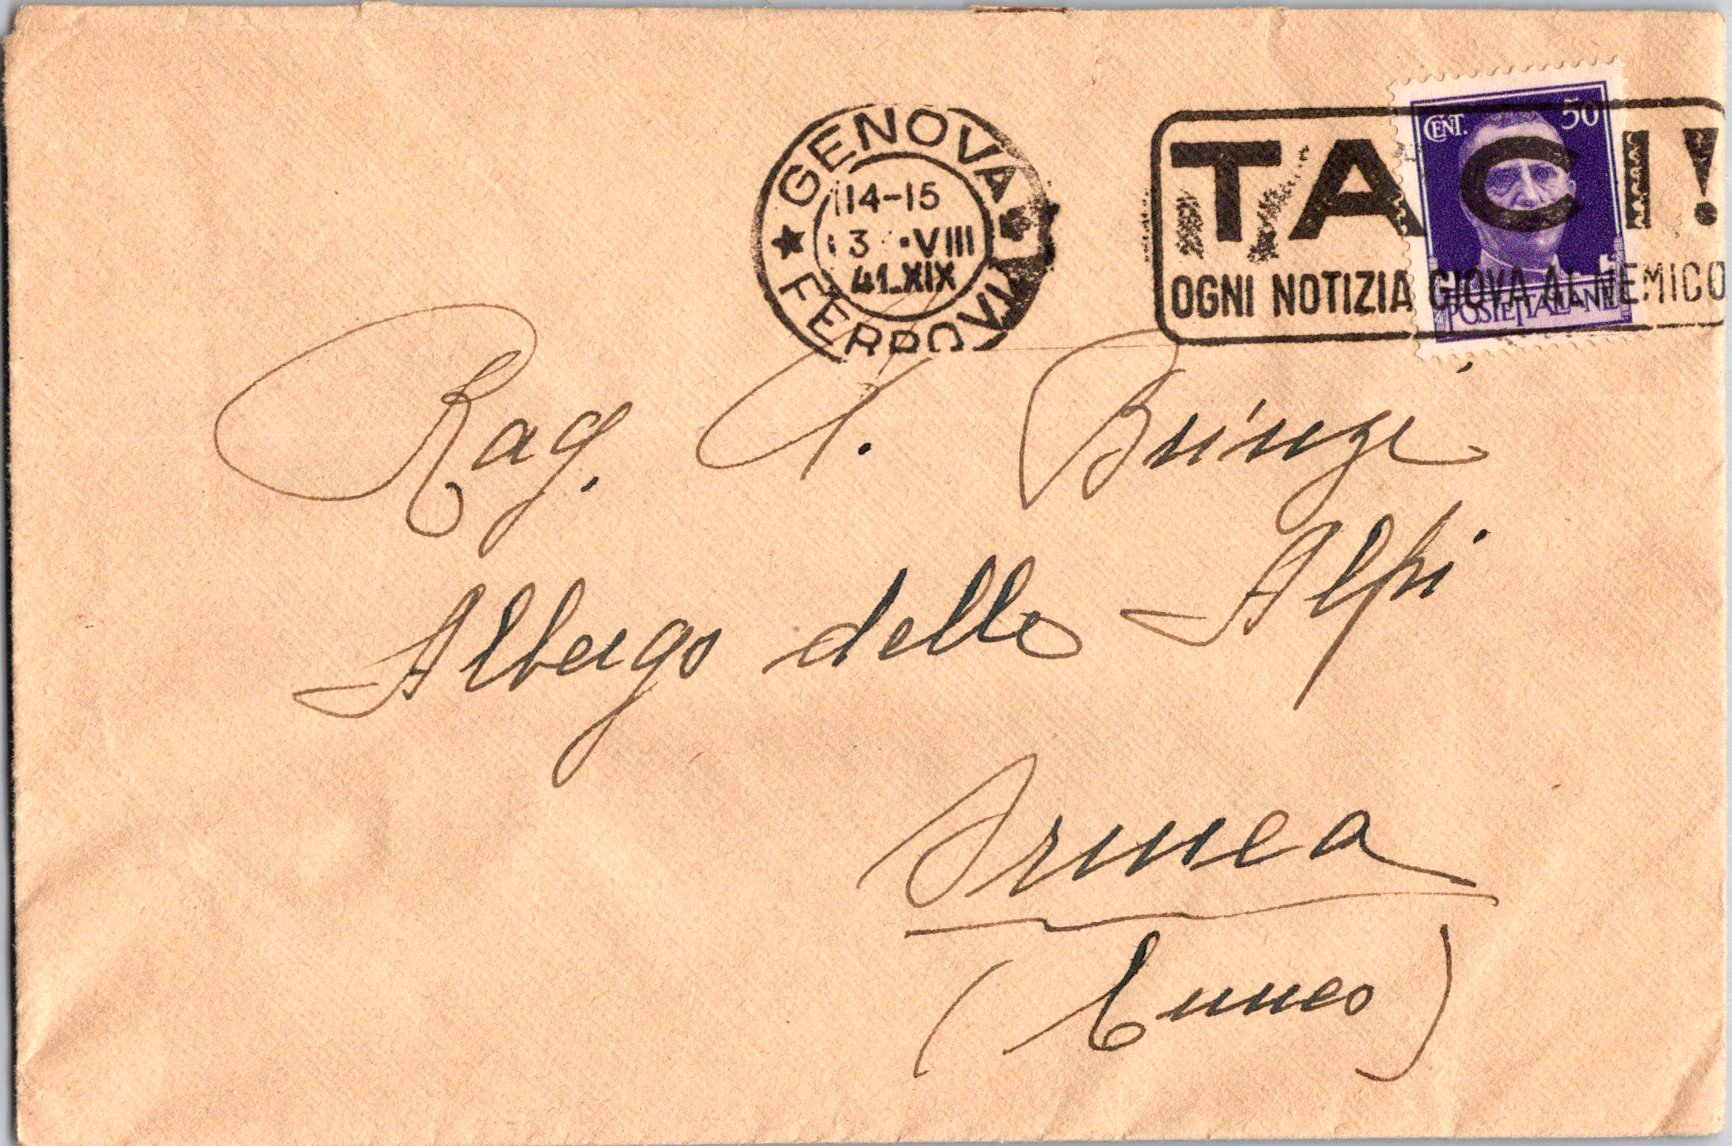 GENOVA
14-15
3 · VIII
41 XIX
FERROVIA
CENT. 50
POSTE ITALIANE
TACI!
OGNI NOTIZIA GIOVA AL NEMICO
Rag.
Albergo delle Alpi
Ormea
(Cuneo)